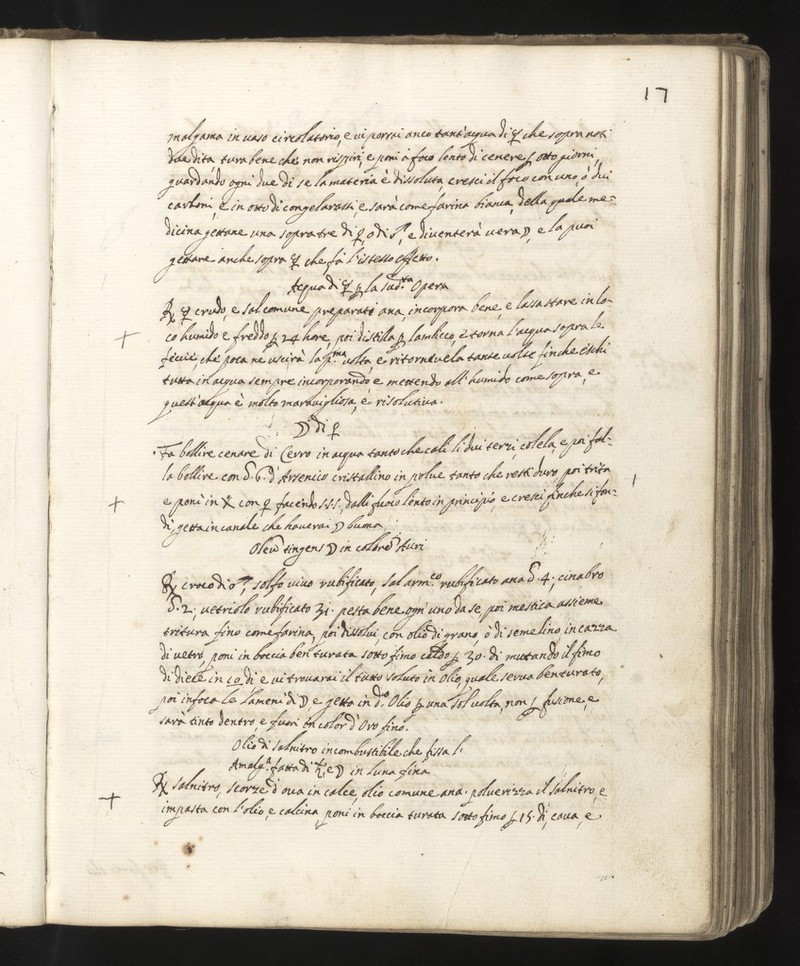 17
malgama in vaso circolatorio, e vi porrai anco tant'acqua di ☿ che sopra noti
due dita tura bene che non rispiri, e poni à foco lento di cenere p otto giorni,
guardando ogni due dì se la materia è dissoluta, cresci il foco con uno, ò dui
carboni, e in otto dì congelarassi, e sarà come farina bianca, della quale me=
dicina gettane una sopra tre di ♀, o di ♂, e diventerà vera ☽, e la puoi
gettare anche sopra ☿ che fà l'istesso effetto.
Acqua di ☿ p la sud.ta Opera
℞ ☿ crudo, e sal comune preparato ana, incorpora bene e lassa stare in lo-
co humido e freddo p 24 hore, poi distila p lambicco, e torna l'acqua sopra le
fecie, che poca ne uscirà la p.ma volta, e ritornavela tante volte finche eschi
tutta in acqua sempre incorporando, e mettendo all'humido come sopra, e
quest'acqua è molto maravigliosa, e risolutiva.
☽ di ♀
Fa bollire cenare di Cerro in acqua tanto che cali li dui terzi colela, e poi fal-
la bollire con 6. d'Arsenico cristallino in polve tanto che resti duro, poi trita
e poni in con ♀ facendo s.s.s., dalli fuoco lento in principio, e cresci finche si fon-
di, getta in canale che haverai ☽ buona
Oleu tingens ☽ in colore Auri
℞ croco di ♂, solfo vivo rubificato, sal arm.co rubificato ana 4., cinabro
2., vetriolo rubificato pesta bene ogn'uno da se, poi mastica assieme
tritura fino come farina, poi dissolui, con olio di grano, ò di seme lino, in cazza
di vetro, poni in boccia ben turata sotto fimo caldo p 30. dì mutando il fimo
di diece in 10 dì e vi trovarai il tutto soluto in olio, quale serva ben turato,
poi infoca le lamene di ☽, e getta in d.o Olio p una sol volta, non p fusione, e
sarà tinto dentro, e fuori in color d'Oro fino.
Olio di salnitro incombustibile che fissa l'
Amalg.a fatta di ♄, e ☽ in luna fina
℞ salnitro, scorze d'ova in calce, olio comune ana. polverizza il salnitro, e
impasta con l'olio, e calcina, poni in boccia turata sotto fimo p 15. dì, cava, e